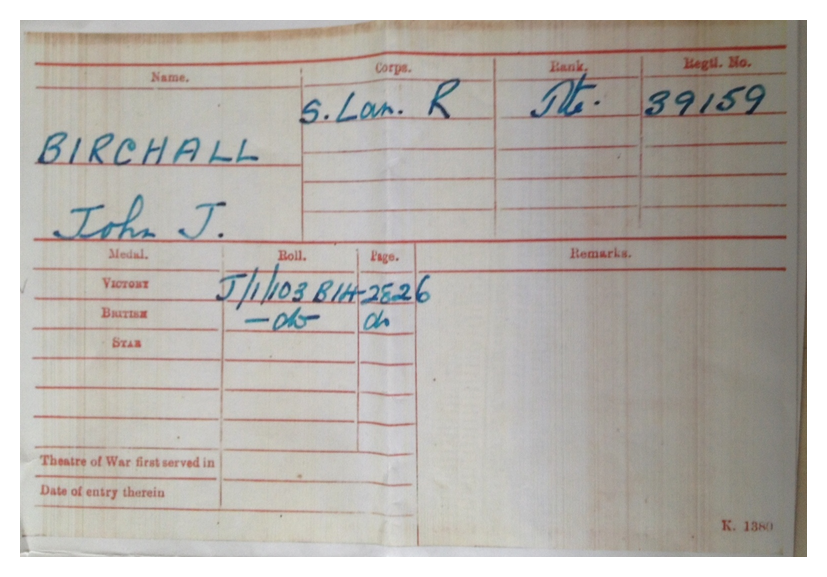 Name. Corps. Rank. Regtl. No.
S. Lan. R Pte. 39159
BIRCHALL
John J.
Medal. Roll. Page. Remarks.
VICTORY J/1/103 B14 2826
BRITISH - do - do
STAR
Theatre of War first served in
Date of entry therein
K. 1380